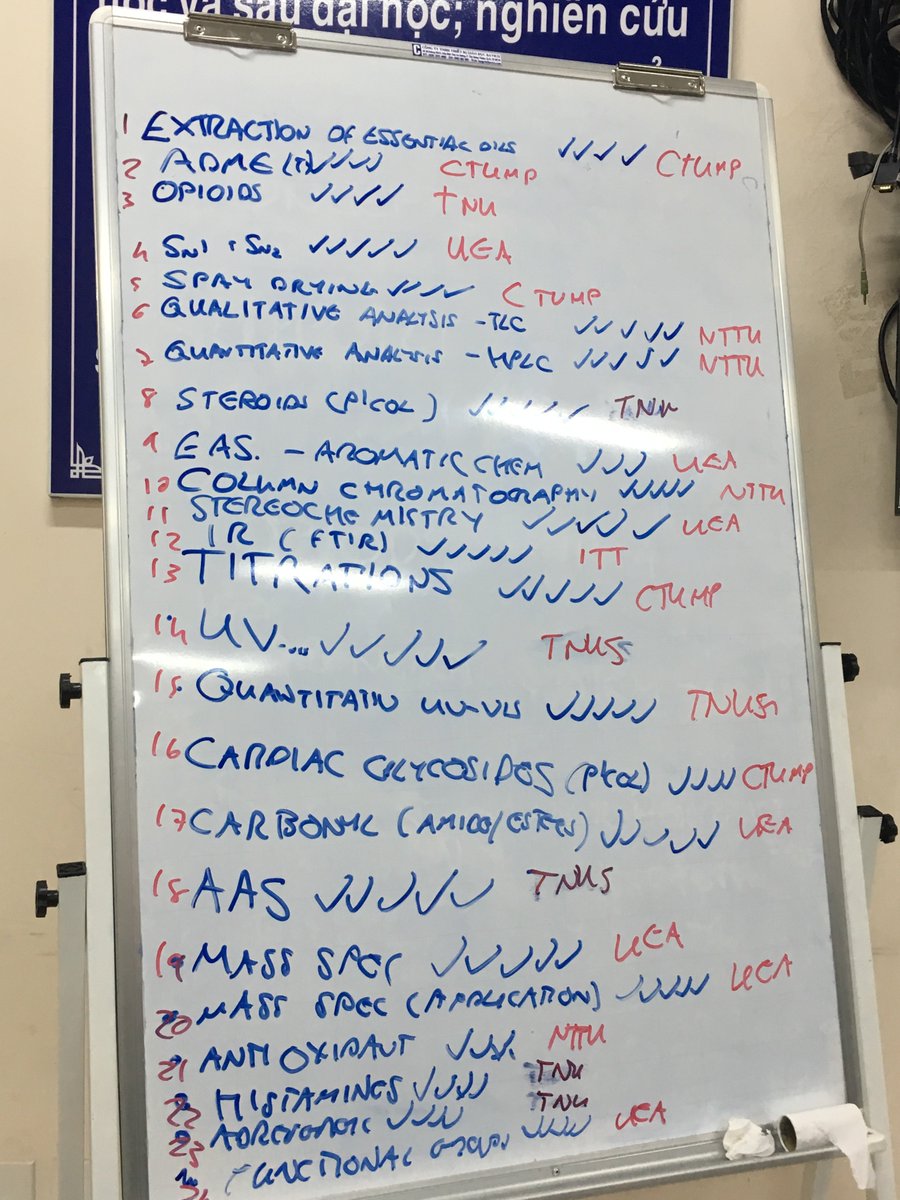 học và sau đại học; nghiên cứu
1 EXTRACTION OF ESSENTIAL OILS ✓✓✓✓ CTUMP
2 ADME ✓✓✓✓ CTUMP
3 OPIOIDS ✓✓✓✓ TNU
4 SN1 : SN2 ✓✓✓✓✓ UEA
5 SPAY DRYING ✓✓✓✓ CTUMP
6 QUALITATIVE ANALYSIS - TLC ✓✓✓✓✓ NTTU
7 QUANTITATIVE ANALYSIS - HPLC ✓✓✓✓✓ NTTU
8 STEROIDS (PICOL) ✓✓✓✓✓ TNU
9 EAS. - AROMATIC CHEM ✓✓✓ UEA
10 COLUMN CHROMATOGRAPHY ✓✓✓✓ NTTU
11 STEREOCHEMISTRY ✓✓✓✓✓ UEA
12 IR (FTIR) ✓✓✓✓✓ ITT
13 TITRATIONS ✓✓✓✓✓ CTUMP
14 UV... ✓✓✓✓✓ TNUS
15. QUANTITATIV UV-VIS ✓✓✓✓✓ TNUS
16 CARDIAC GLYCOSIDES (PICOL) ✓✓✓✓ CTUMP
17 CARBONYL (AMIDES/ESTERS) ✓✓✓✓✓ UEA
18 AAS ✓✓✓✓✓ TNUS
19 MASS SPEC ✓✓✓✓✓ UEA
20 MASS SPEC (APPLICATION) ✓✓✓✓✓ UEA
21 ANTIOXIDANT ✓✓✓✓ NTTU
22 HISTAMINES ✓✓✓✓ TNU
23 ADRENERGIC ✓✓✓✓ TNU
24 FUNCTIONAL GROUPS ✓✓✓✓ UEA